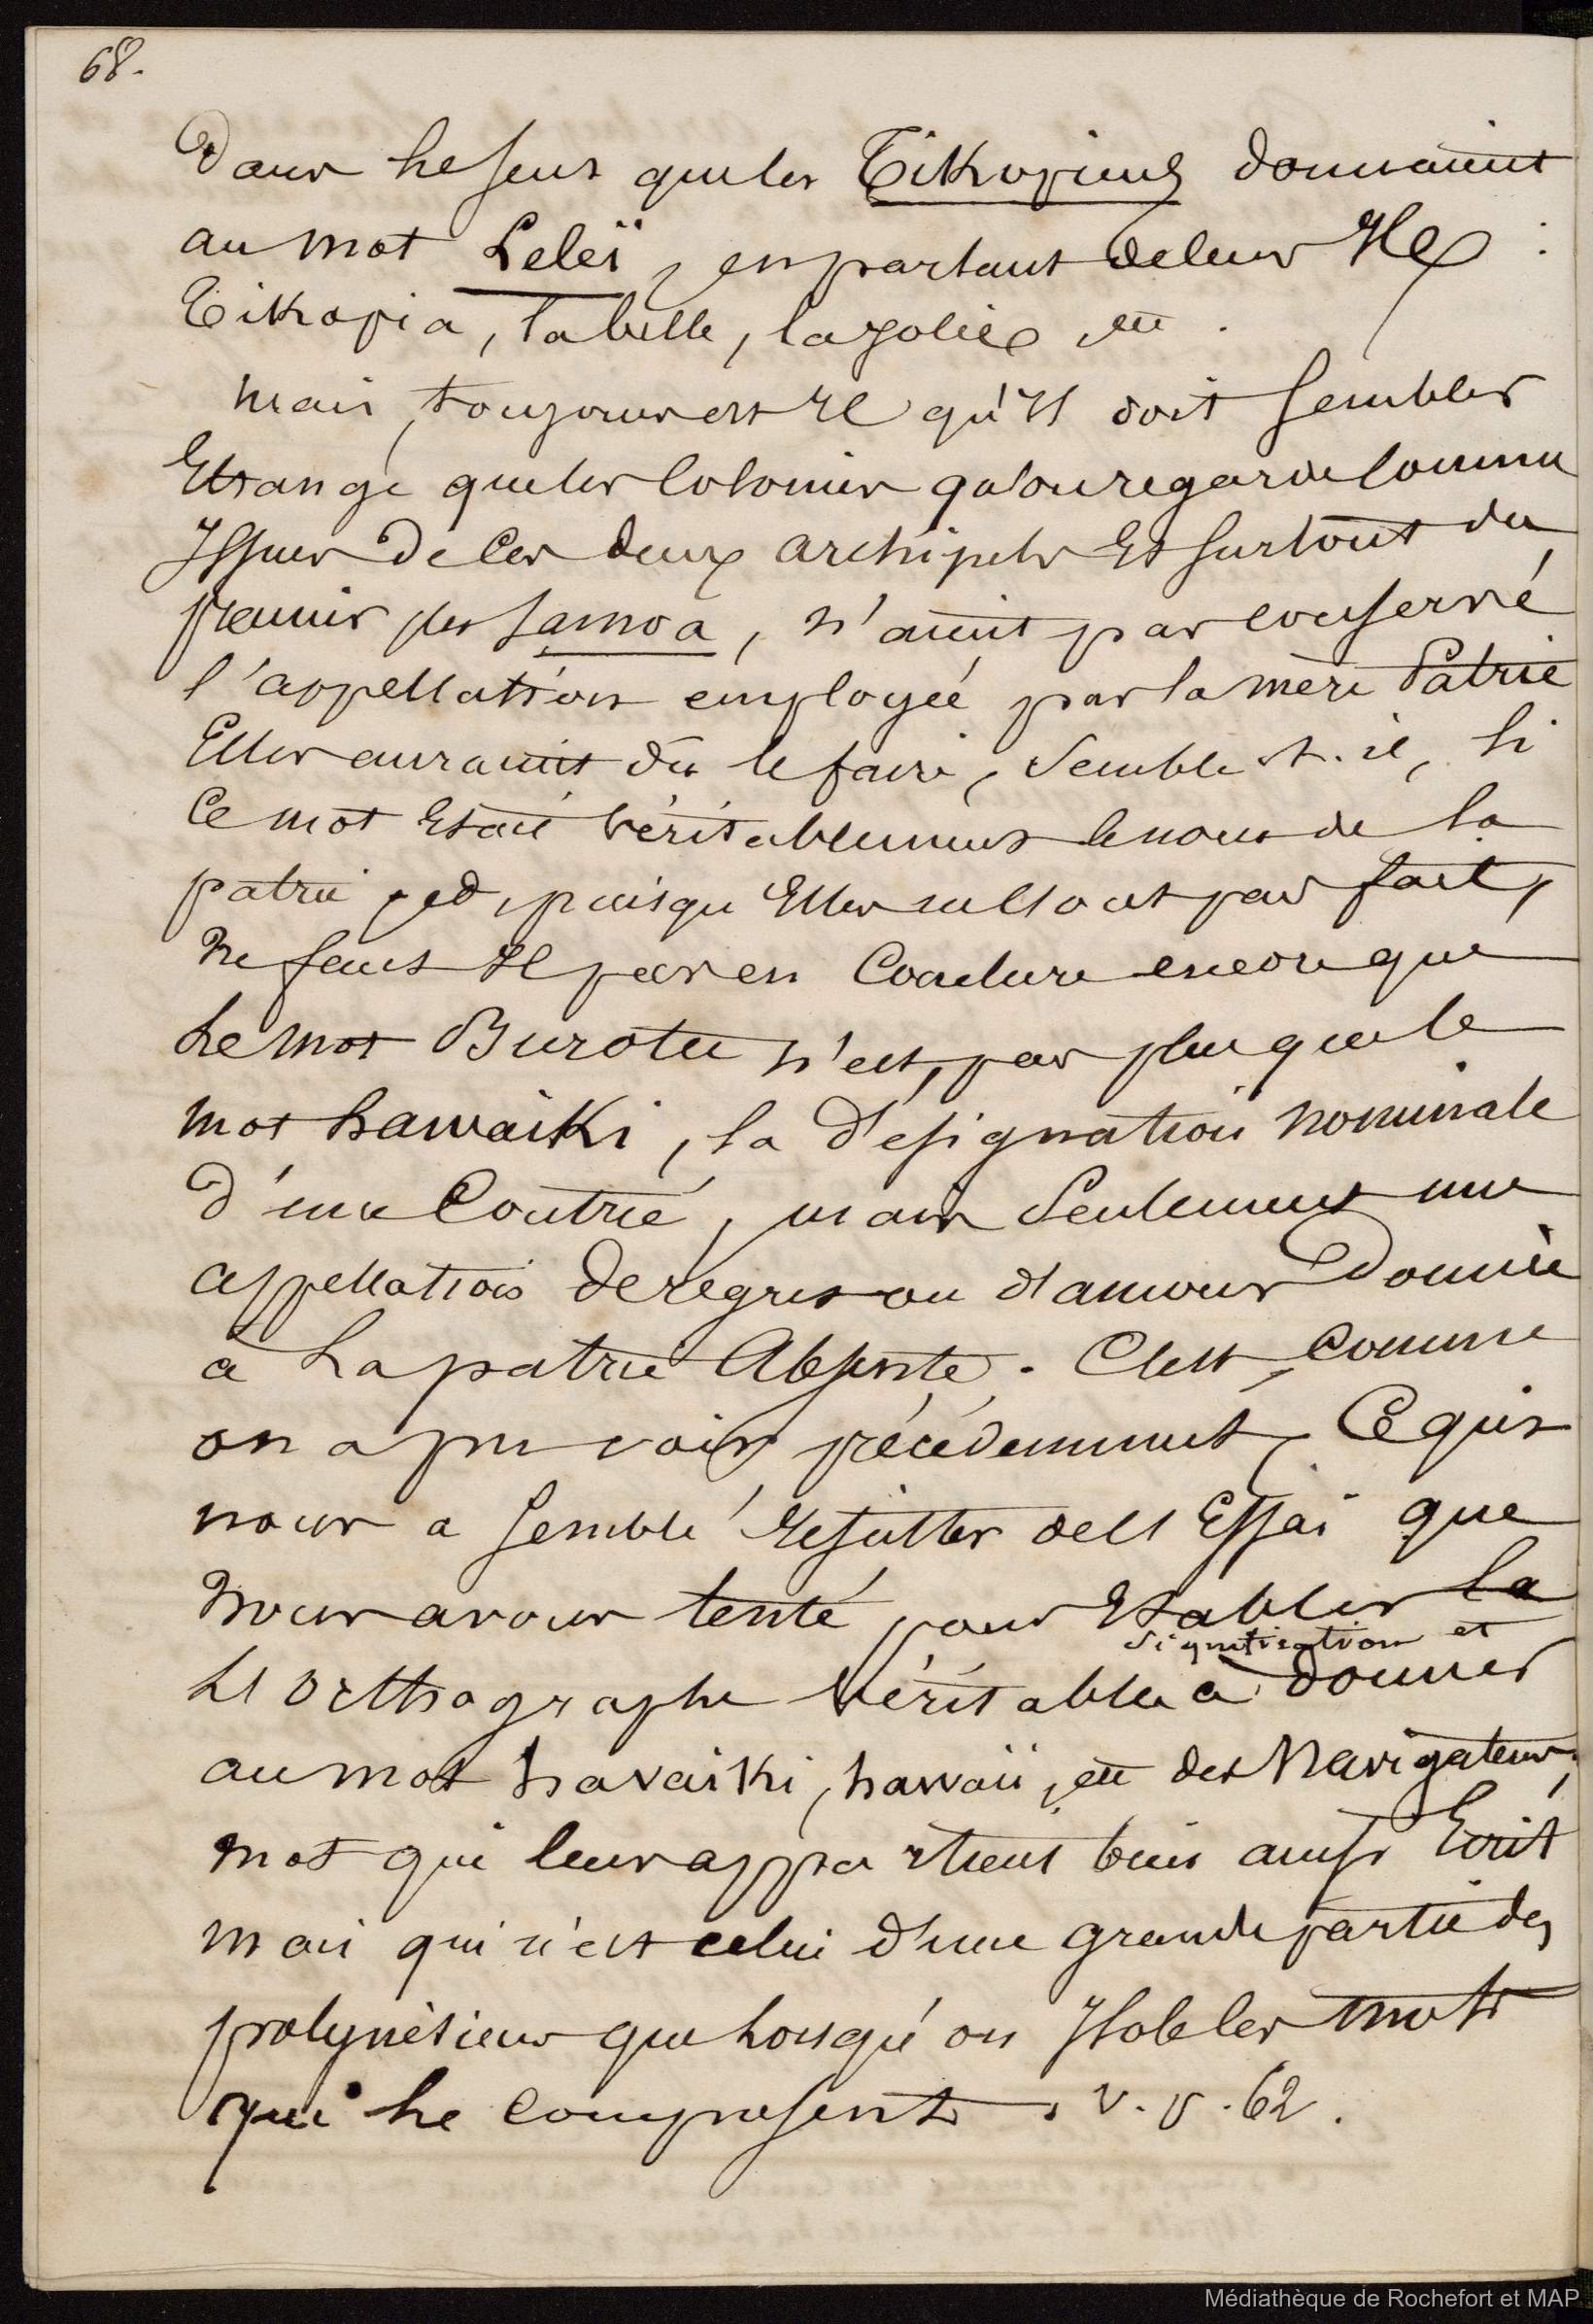 68.
Dans le sens que les Tikopiens donnaient
au mot Leleï, en parlant de leur Ile :
Tikopia, la belle, la jolie, etc.
mais, toujours est Il qu'Il doit sembler
Etrange que les Colonies qu'on regarde comme
Issues de ces deux archipels Et surtout du
premier, les Samoa, n'aient pas conservé
l'appellation employée par la mère Patrie
Elles auraient dû le faire, semble-t-il, si
ce mot Etait véritablement le nom de la
patrie ; et, puisqu'Elles ne l'ont pas fait,
ne faut Il pas en Conclure encore que
le mot Burotu n'est, pas plus que le
mot hawaiki, la désignation nominale
d'une Contrée, mais seulement une
appellation de regret ou d'amour Donnée
à la patrie Absente. C'est, comme
on a pu voir précédemment, Ce qui
nous a semblé résulter de l'Essai que
nous avons tenté pour Etablir la
signification et
l'orthographe véritable à donner
au mot havaiki, hawaii, etc des Navigateurs,
mot qui leur appartient bien ainsi Ecrit
mais qui n'est celui d'une grande partie des
polynésiens que lorsqu'on Isole les mots
qui le composent. v. p. 62.
Médiathèque de Rochefort et MAP